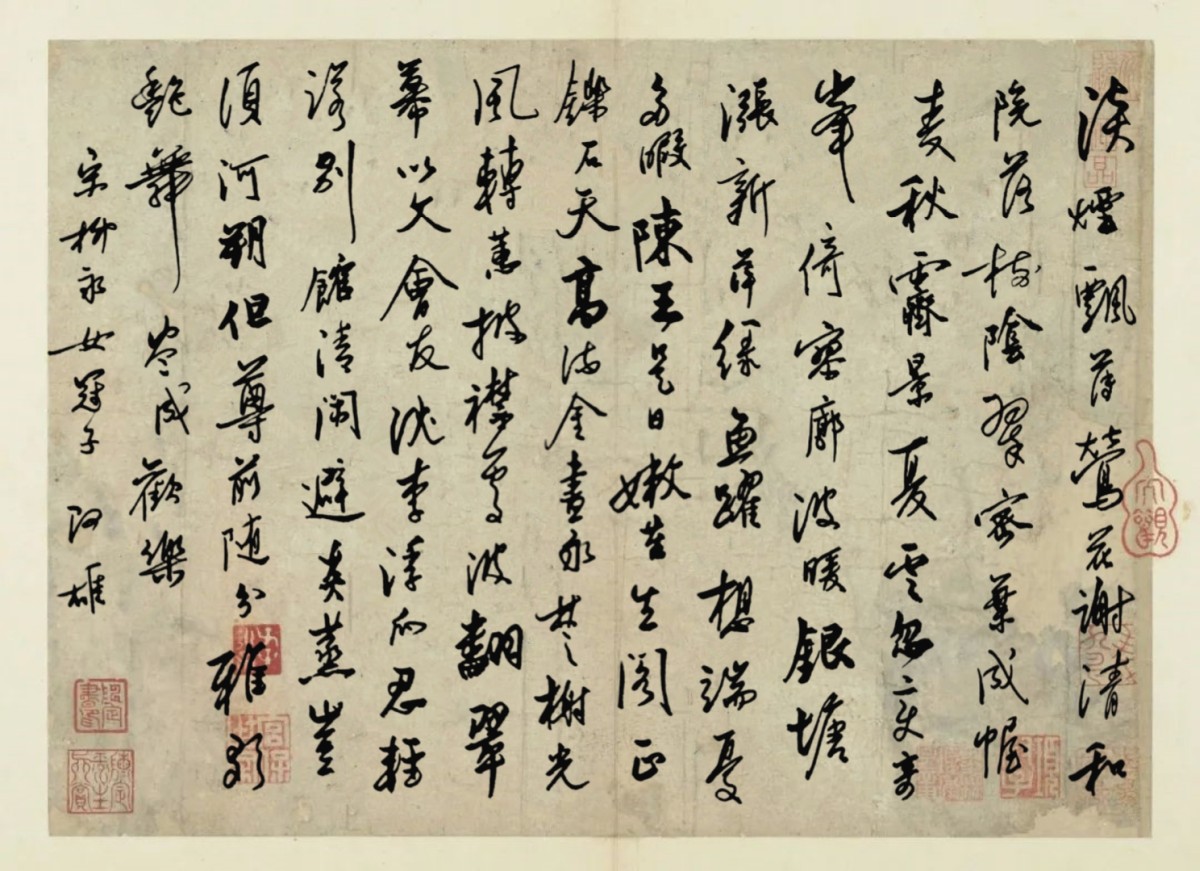 淡煙飄薄鶯花謝清和
院落樹陰翠密葉成幄
麦秋霽景夏雲忽变奇
峯倚寥廓波暖銀塘
漲新萍緑魚躍想端憂
多暇陳王是日嫩苔生閣正
鑠石天高流金晝永楚榭光
風轉蕙披襟處波翻翠
幕以文會友沈李浮瓜忍輕
諾别館清閑避炎蒸豈
須河朔但尊前随分雅歌
艷舞 盡成歡樂
宋柳永女冠子 阿雄
大觀